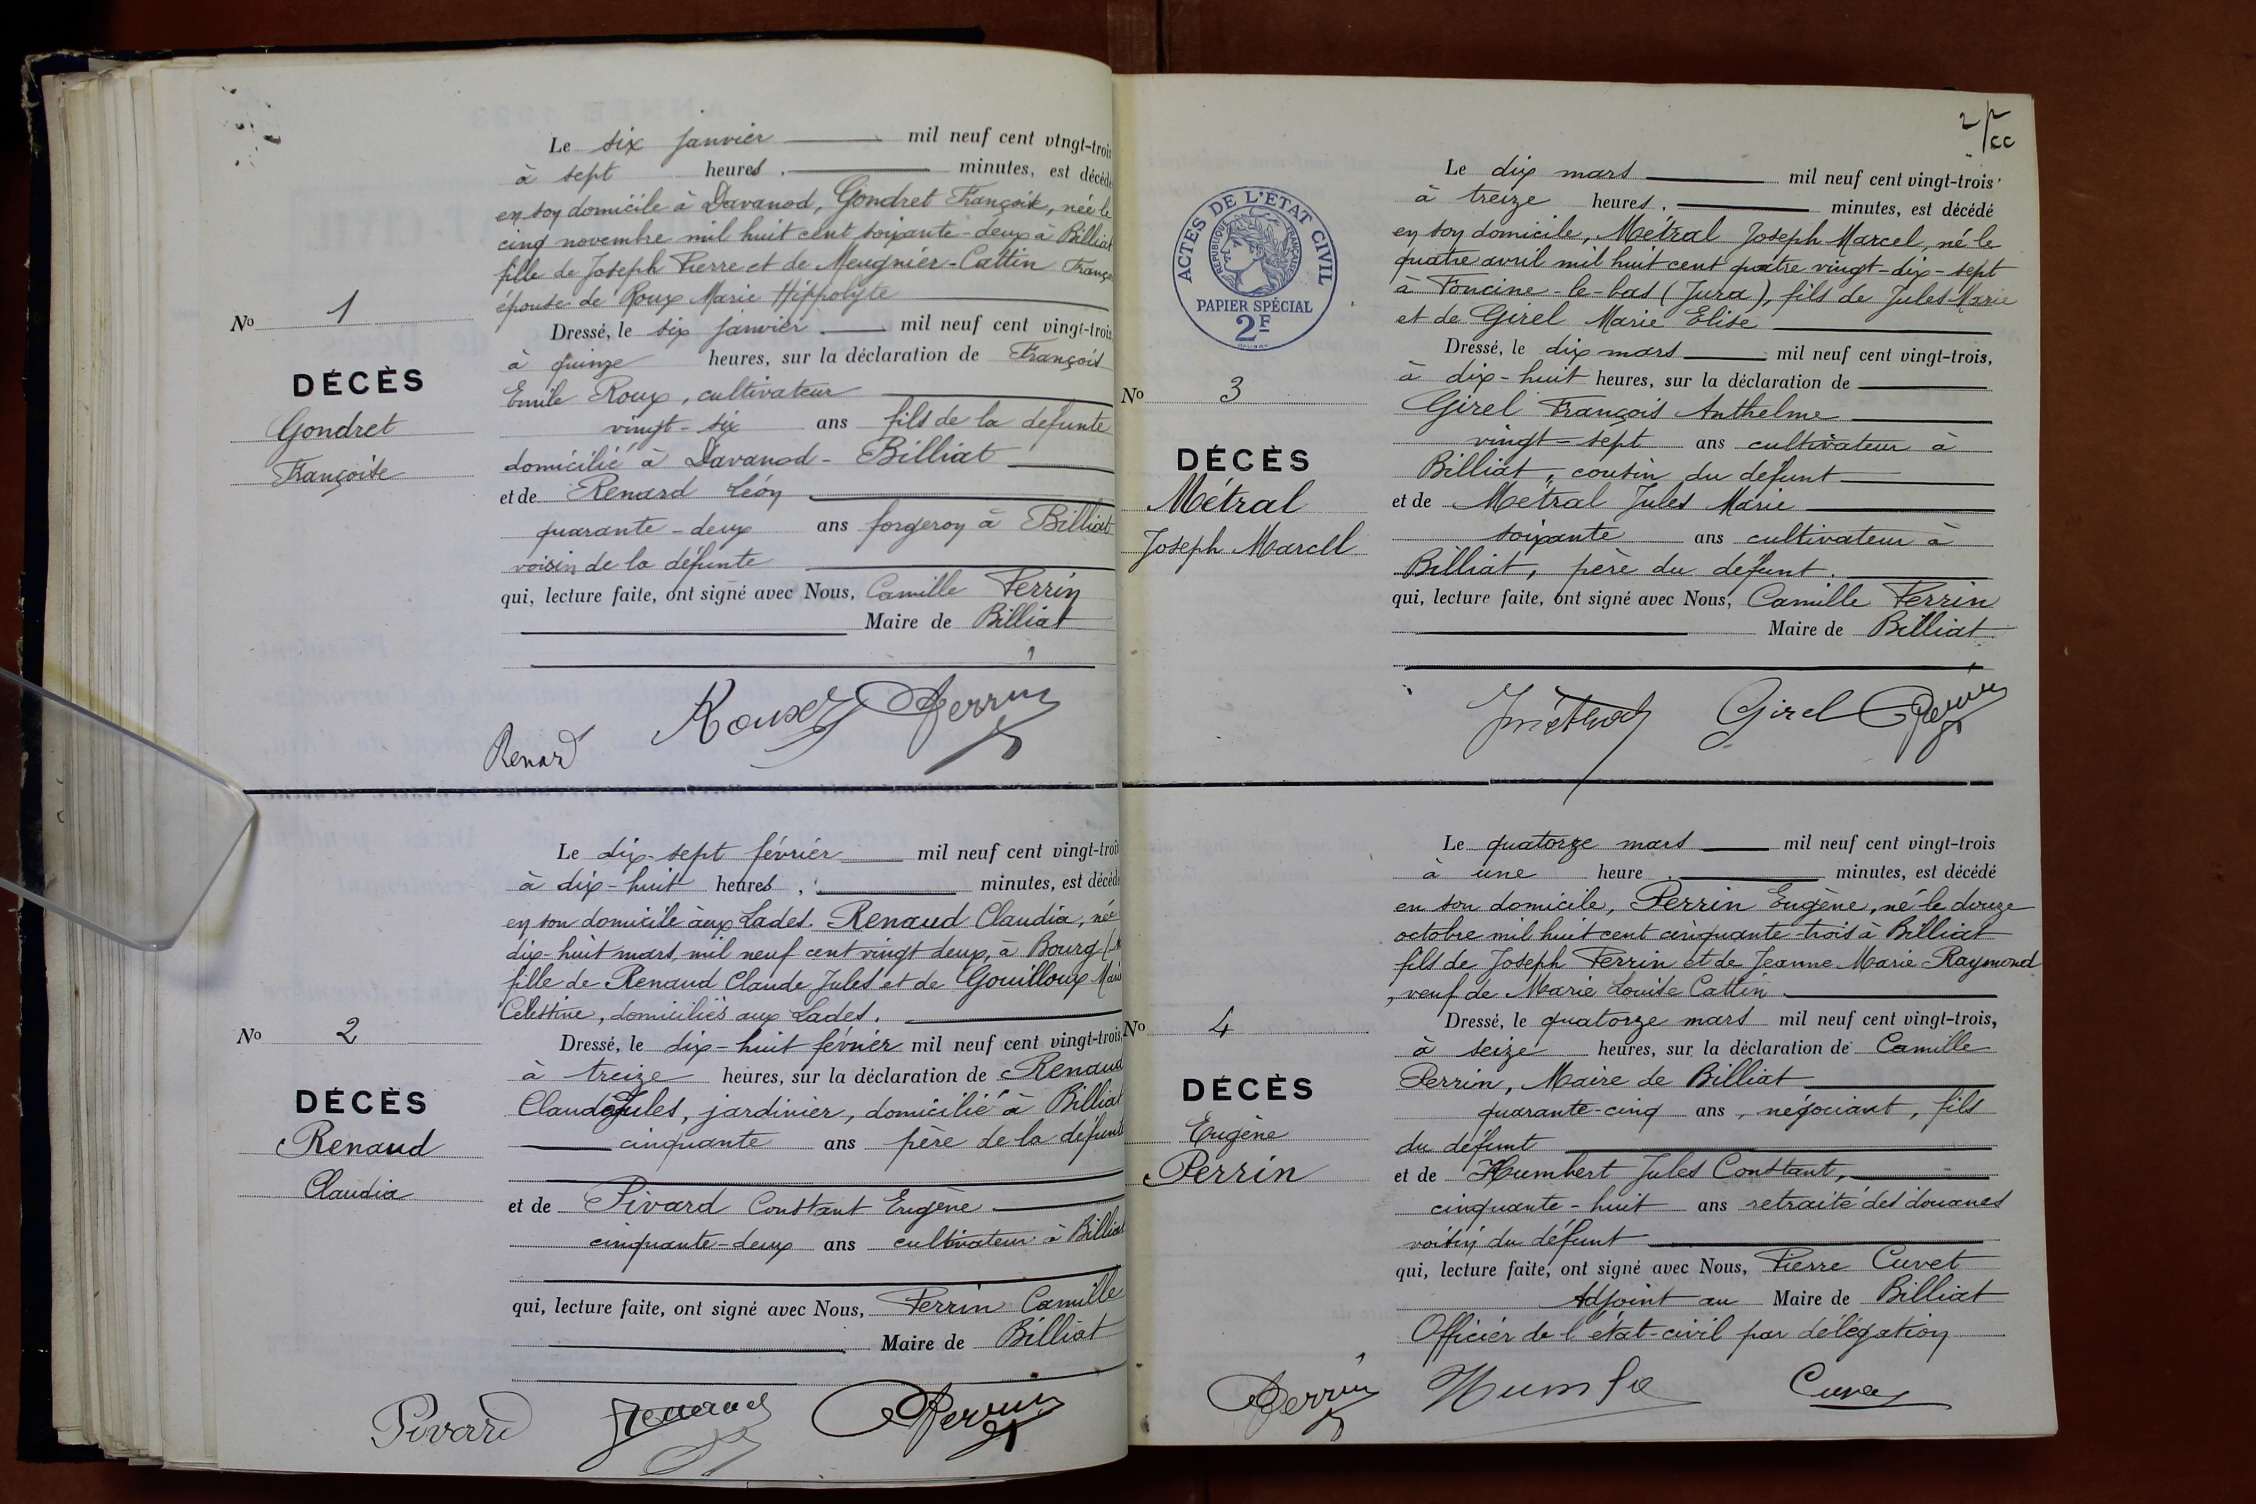 Le six janvier mil neuf cent vingt-trois
à sept heures, minutes, est décédé
en son domicile à Davanod, Gondret Françoise, née le
cinq novembre mil huit cent soixante-deux à Billiat
fille de Joseph Pierre et de Meugnier-Cattin
épouse de Roux Marie Hippolyte
No 1
Dressé, le six janvier mil neuf cent vingt-trois
à quinze heures, sur la déclaration de François
DÉCÈS
Emile Roux, cultivateur
Gondret
vingt-six ans fils de la défunte
Françoise
domicilié à Davanod - Billiat
et de Renard Léon
quarante-deux ans forgeron à Billiat
voisin de la défunte
qui, lecture faite, ont signé avec Nous, Camille Perrin
Maire de Billiat
Renard Roux Perrin
Le dix-sept février mil neuf cent vingt-trois
à dix-huit heures, minutes, est décédé
en son domicile aux Lades. Renaud Claudia, née
dix-huit mars mil neuf cent vingt deux, à Bourg
fille de Renaud Claude Jules et de Gouilloux
Célestine, domiciliés aux Lades.
No 2
Dressé, le dix-huit février mil neuf cent vingt-trois,
à treize heures, sur la déclaration de Renaud
DÉCÈS
Claude Jules, jardinier, domicilié à Billiat
Renaud
cinquante ans père de la défunte
Claudia
et de Pivard Constant Eugène
cinquante-deux ans cultivateur à Billiat
qui, lecture faite, ont signé avec Nous, Perrin Camille
Maire de Billiat
Pivard Renaud Perrin
2
ACTES DE L'ÉTAT CIVIL
RÉPUBLIQUE FRANÇAISE
PAPIER SPÉCIAL
2F
Le dix mars mil neuf cent vingt-trois
à treize heures, minutes, est décédé
en son domicile, Métral Joseph Marcel, né le
quatre avril mil huit cent quatre vingt-dix-sept
à Foncine-le-bas (Jura), fils de Jules Marie
et de Girel Marie Elise
Dressé, le dix mars mil neuf cent vingt-trois,
à dix-huit heures, sur la déclaration de
No 3
Girel François Anthelme
vingt-sept ans cultivateur à
DÉCÈS
Billiat, cousin du défunt
Métral
et de Métral Jules Marie
Joseph Marcel
soixante ans cultivateur à
Billiat, père du défunt.
qui, lecture faite, ont signé avec Nous, Camille Perrin
Maire de Billiat
Girel Perrin
Le quatorze mars mil neuf cent vingt-trois
à une heure minutes, est décédé
en son domicile, Perrin Eugène, né le douze
octobre mil huit cent cinquante-trois à Billiat
fils de Joseph Perrin et de Jeanne Marie Raymond
, veuf de Marie Louise Cattin
No 4
Dressé, le quatorze mars mil neuf cent vingt-trois,
à seize heures, sur la déclaration de Camille
DÉCÈS
Perrin, Maire de Billiat
quarante-cinq ans, négociant, fils
Eugène
du défunt
Perrin
et de Humbert Jules Constant,
cinquante-huit ans retraité des douanes
voisin du défunt
qui, lecture faite, ont signé avec Nous, Pierre Cuvet
Adjoint au Maire de Billiat
Officier de l'état-civil par délégation
Perrin Cuvet